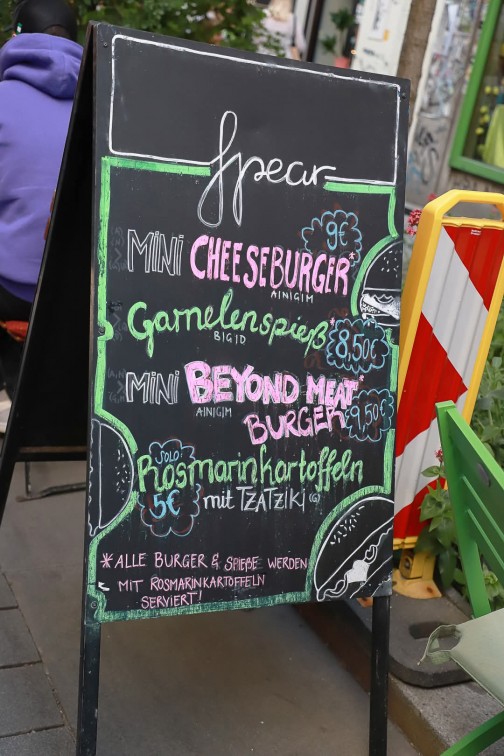 Spear
9€
MiNi CHEESEBURGER*
A|N|G|M
Garnelenspieß*
B|G|D
8,50€
MiNi BEYOND MEAT*
A|N|G|M
BURGER
9,50€
SOLO: Rosmarinkartoffeln
5€
mit TZATZIKI (G)
*ALLE BURGER & SPIEßE WERDEN
MIT ROSMARINKARTOFFELN
SERVIERT!